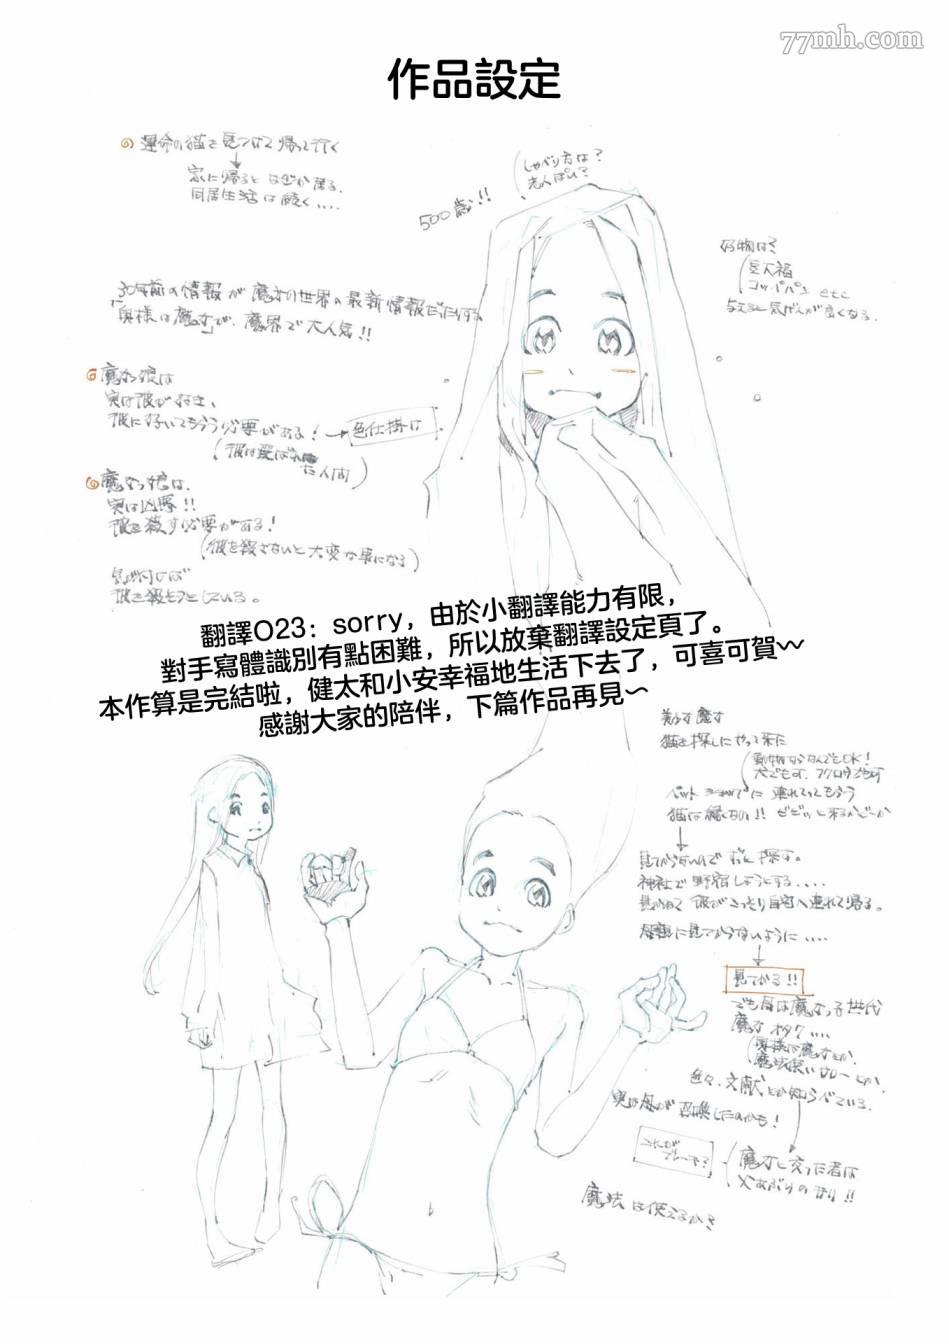 77mh.com
作品設定
運命の猫を見つけて帰って行く
家に帰るとなぜか居る。
同居生活は続く....
しゃべり方は？
老人ぽい？
500歳!!
好物は？
豆大福
コッペパン etc
30年前の情報が魔女の世界の最新情報だったりする
「奥様は魔女」が、魔界で大人気!!
魔女っ娘は
実は彼が好き、
彼に好いてもらう必要がある！→色仕掛け
(彼は選ばれた人間)
魔女っ娘は、
実は凶悪!!
彼を殺す必要がある！
(彼を殺さないと大変な事になる)
気が付けば
彼を殺そうとしている。
翻譯O23：sorry，由於小翻譯能力有限，
對手寫體識別有點困難，所以放棄翻譯設定頁了。
本作算是完結啦，健太和小安幸福地生活下去了，可喜可賀~
感謝大家的陪伴，下篇作品再見~
猫を探しにやって来た
動物ならなんでもOK！
ペットショップに連れてってもらう
神社で野宿しようとする....
彼がこっそり自宅へ連れて帰る。
母親に見つからないように....
見つかる!!
でも母は魔女っ子世代
魔女オタク....
色々、文献とか知らべている。
実は母が召喚したのかも！
魔女と交った者は
火あぶりの刑!!
魔法は使えるか？